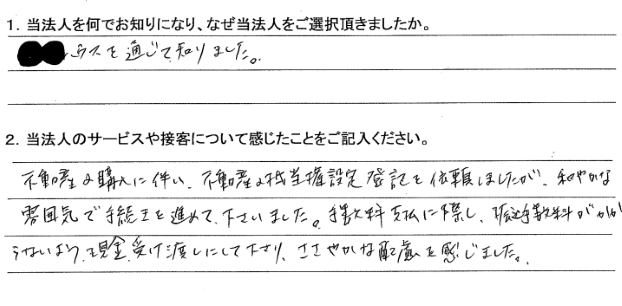 1. 当法人を何でお知りになり、なぜ当法人をご選択頂きましたか。
ウスを通じて知りました。
2. 当法人のサービスや接客について感じたことをご記入ください。
不動産の購入に伴い、不動産の抵当権設定登記を依頼しましたが、和やかな
雰囲気で手続きを進めて下さいました。手数料支払に際し、振込手数料がかか
らないよう、現金受け渡しにして下さり、ささやかな配慮を感じました。